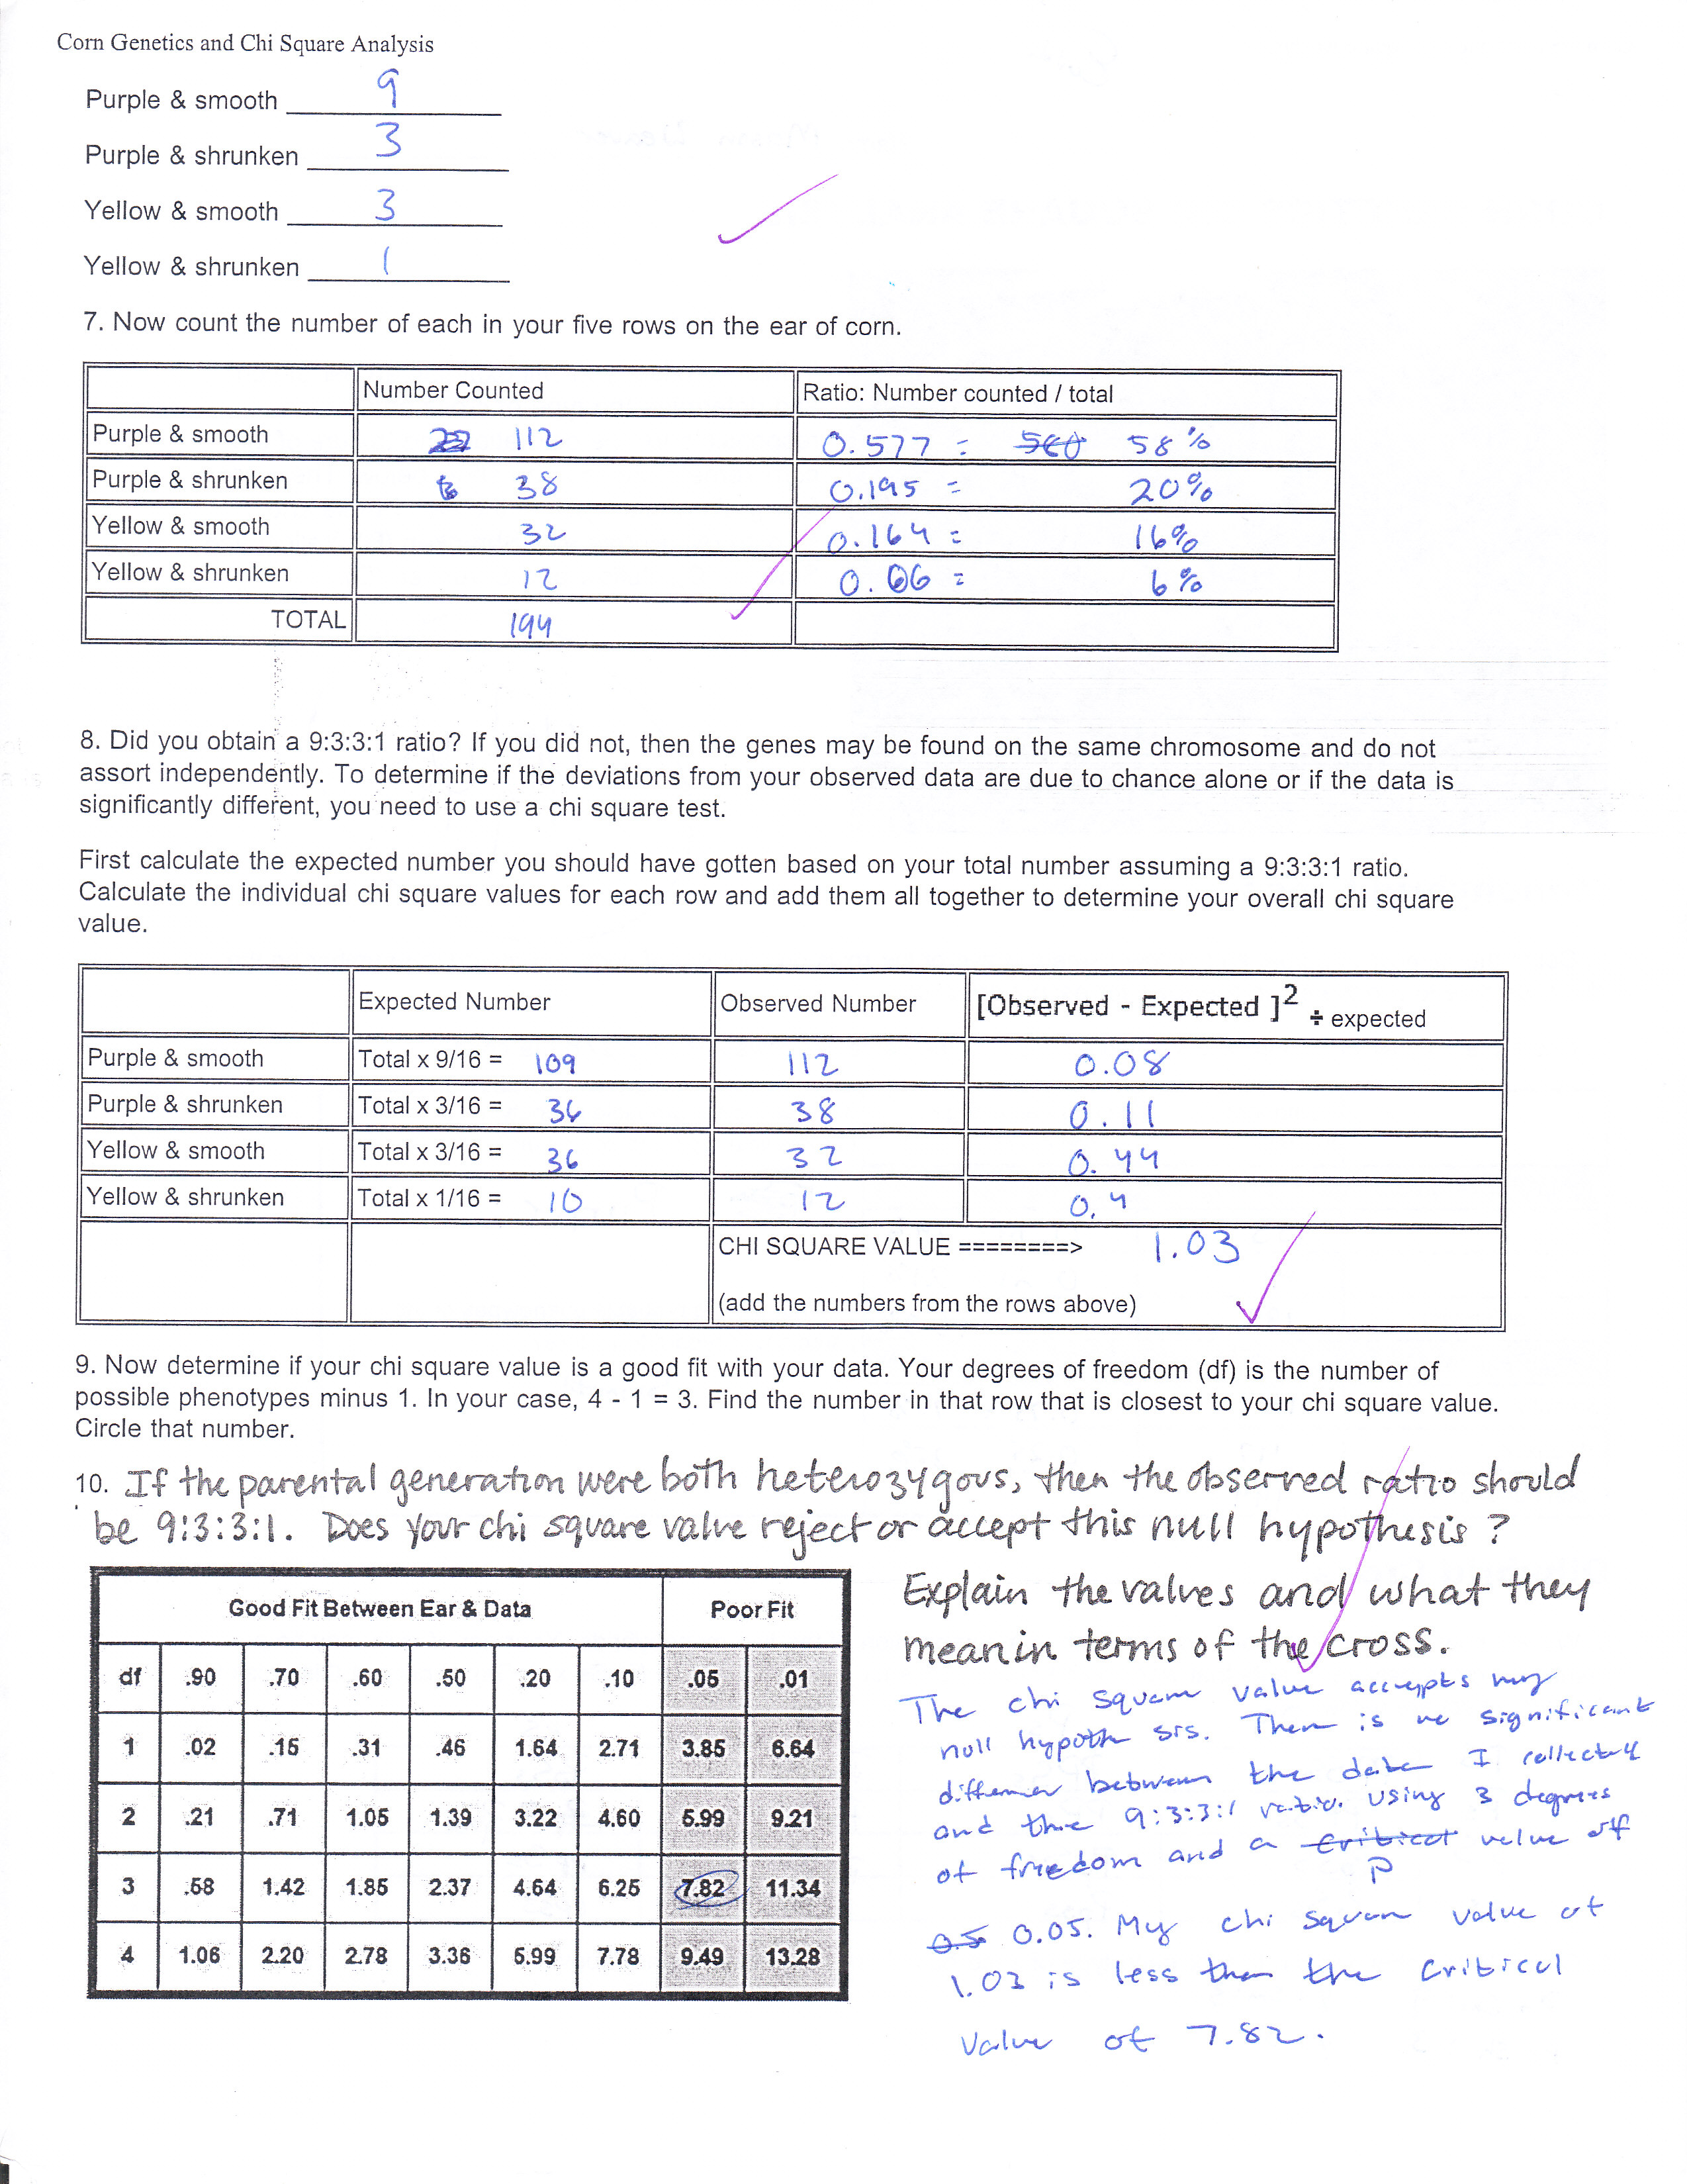 Corn Genetics and Chi Square Analysis
Purple & smooth 9
Purple & shrunken 3
Yellow & smooth 3
Yellow & shrunken 1
7. Now count the number of each in your five rows on the ear of corn.
Number Counted Ratio: Number counted / total
Purple & smooth 112 0.577 = 58%
Purple & shrunken 38 0.195 = 20%
Yellow & smooth 32 0.164 = 16%
Yellow & shrunken 12 0.06 = 6%
TOTAL 194
8. Did you obtain a 9:3:3:1 ratio? If you did not, then the genes may be found on the same chromosome and do not
assort independently. To determine if the deviations from your observed data are due to chance alone or if the data is
significantly different, you need to use a chi square test.
First calculate the expected number you should have gotten based on your total number assuming a 9:3:3:1 ratio.
Calculate the individual chi square values for each row and add them all together to determine your overall chi square
value.
Expected Number Observed Number [Observed - Expected ]² ÷ expected
Purple & smooth Total x 9/16 = 109 112 0.08
Purple & shrunken Total x 3/16 = 36 38 0.11
Yellow & smooth Total x 3/16 = 36 32 0.44
Yellow & shrunken Total x 1/16 = 10 12 0.4
CHI SQUARE VALUE ========> 1.03
(add the numbers from the rows above)
9. Now determine if your chi square value is a good fit with your data. Your degrees of freedom (df) is the number of
possible phenotypes minus 1. In your case, 4 - 1 = 3. Find the number in that row that is closest to your chi square value.
Circle that number.
10. If the parental generation were both heterozygous, then the observed ratio should
be 9:3:3:1. Does your chi square value reject or accept this null hypothesis?
Explain the values and what they
mean in terms of the cross.
Good Fit Between Ear & Data Poor Fit
df .90 .70 .60 .50 .20 .10 .05 .01
1 .02 .15 .31 .46 1.64 2.71 3.85 6.64
2 .21 .71 1.05 1.39 3.22 4.60 5.99 9.21
3 .58 1.42 1.85 2.37 4.64 6.25 7.82 11.34
4 1.06 2.20 2.78 3.36 5.99 7.78 9.49 13.28
The chi square value accepts my
null hypothesis. There is no significant
difference between the data I collected
and the 9:3:3:1 ratio. using 3 degrees
of freedom and a critical value of
P
0.5 0.05. My chi square value of
1.03 is less than the critical
value of 7.82.